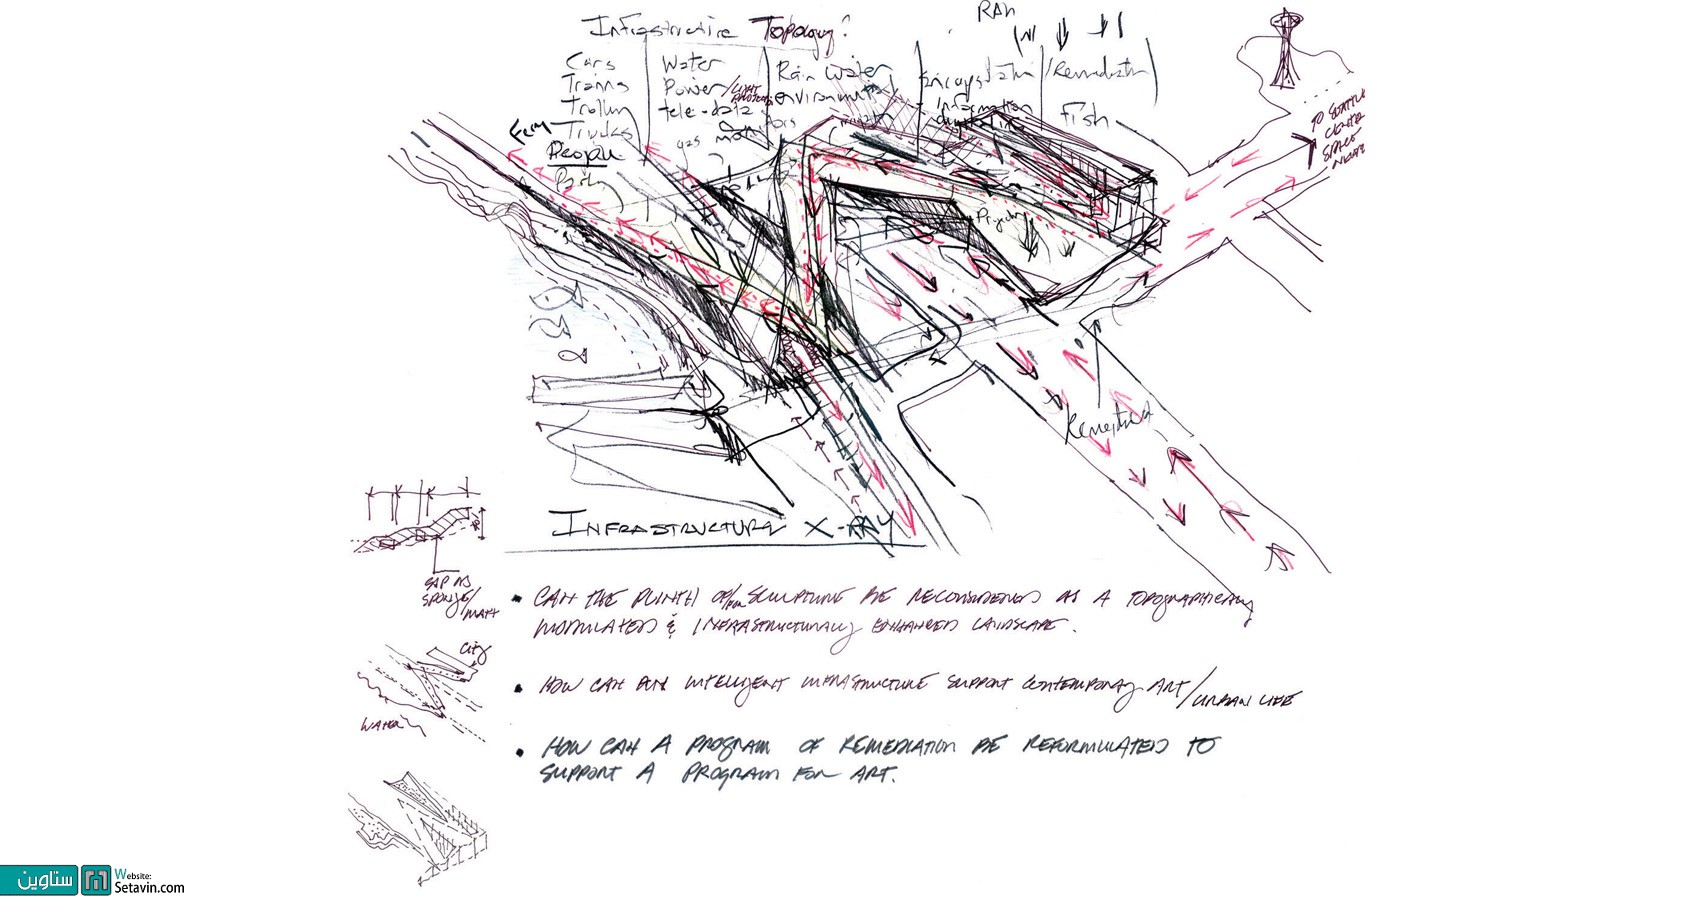 Infrastructure Topology?
Cars
Trains
Trolley
Trucks
People
Ferry
Water
Power/Light
tele-data
gas
Rain Water
environment
information
/Remediation
Fish
TO SEATTLE
CENTER
SPACE
NEEDLE
INFRASTRUCTURE X-RAY
SPONGE/
CITY
WATER
• CAN THE PLINTH OF/FOR SCULPTURE BE RECONSIDERED AS A TOPOGRAPHICALLY
MODULATED & INFRASTRUCTURALLY ENHANCED LANDSCAPE.
• HOW CAN AN INTELLIGENT INFRASTRUCTURE SUPPORT CONTEMPORARY ART/URBAN LIFE
• HOW CAN A PROGRAM OF REMEDIATION BE REFORMULATED TO
SUPPORT A PROGRAM FOR ART.
ستاوین
Website:
Setavin.com